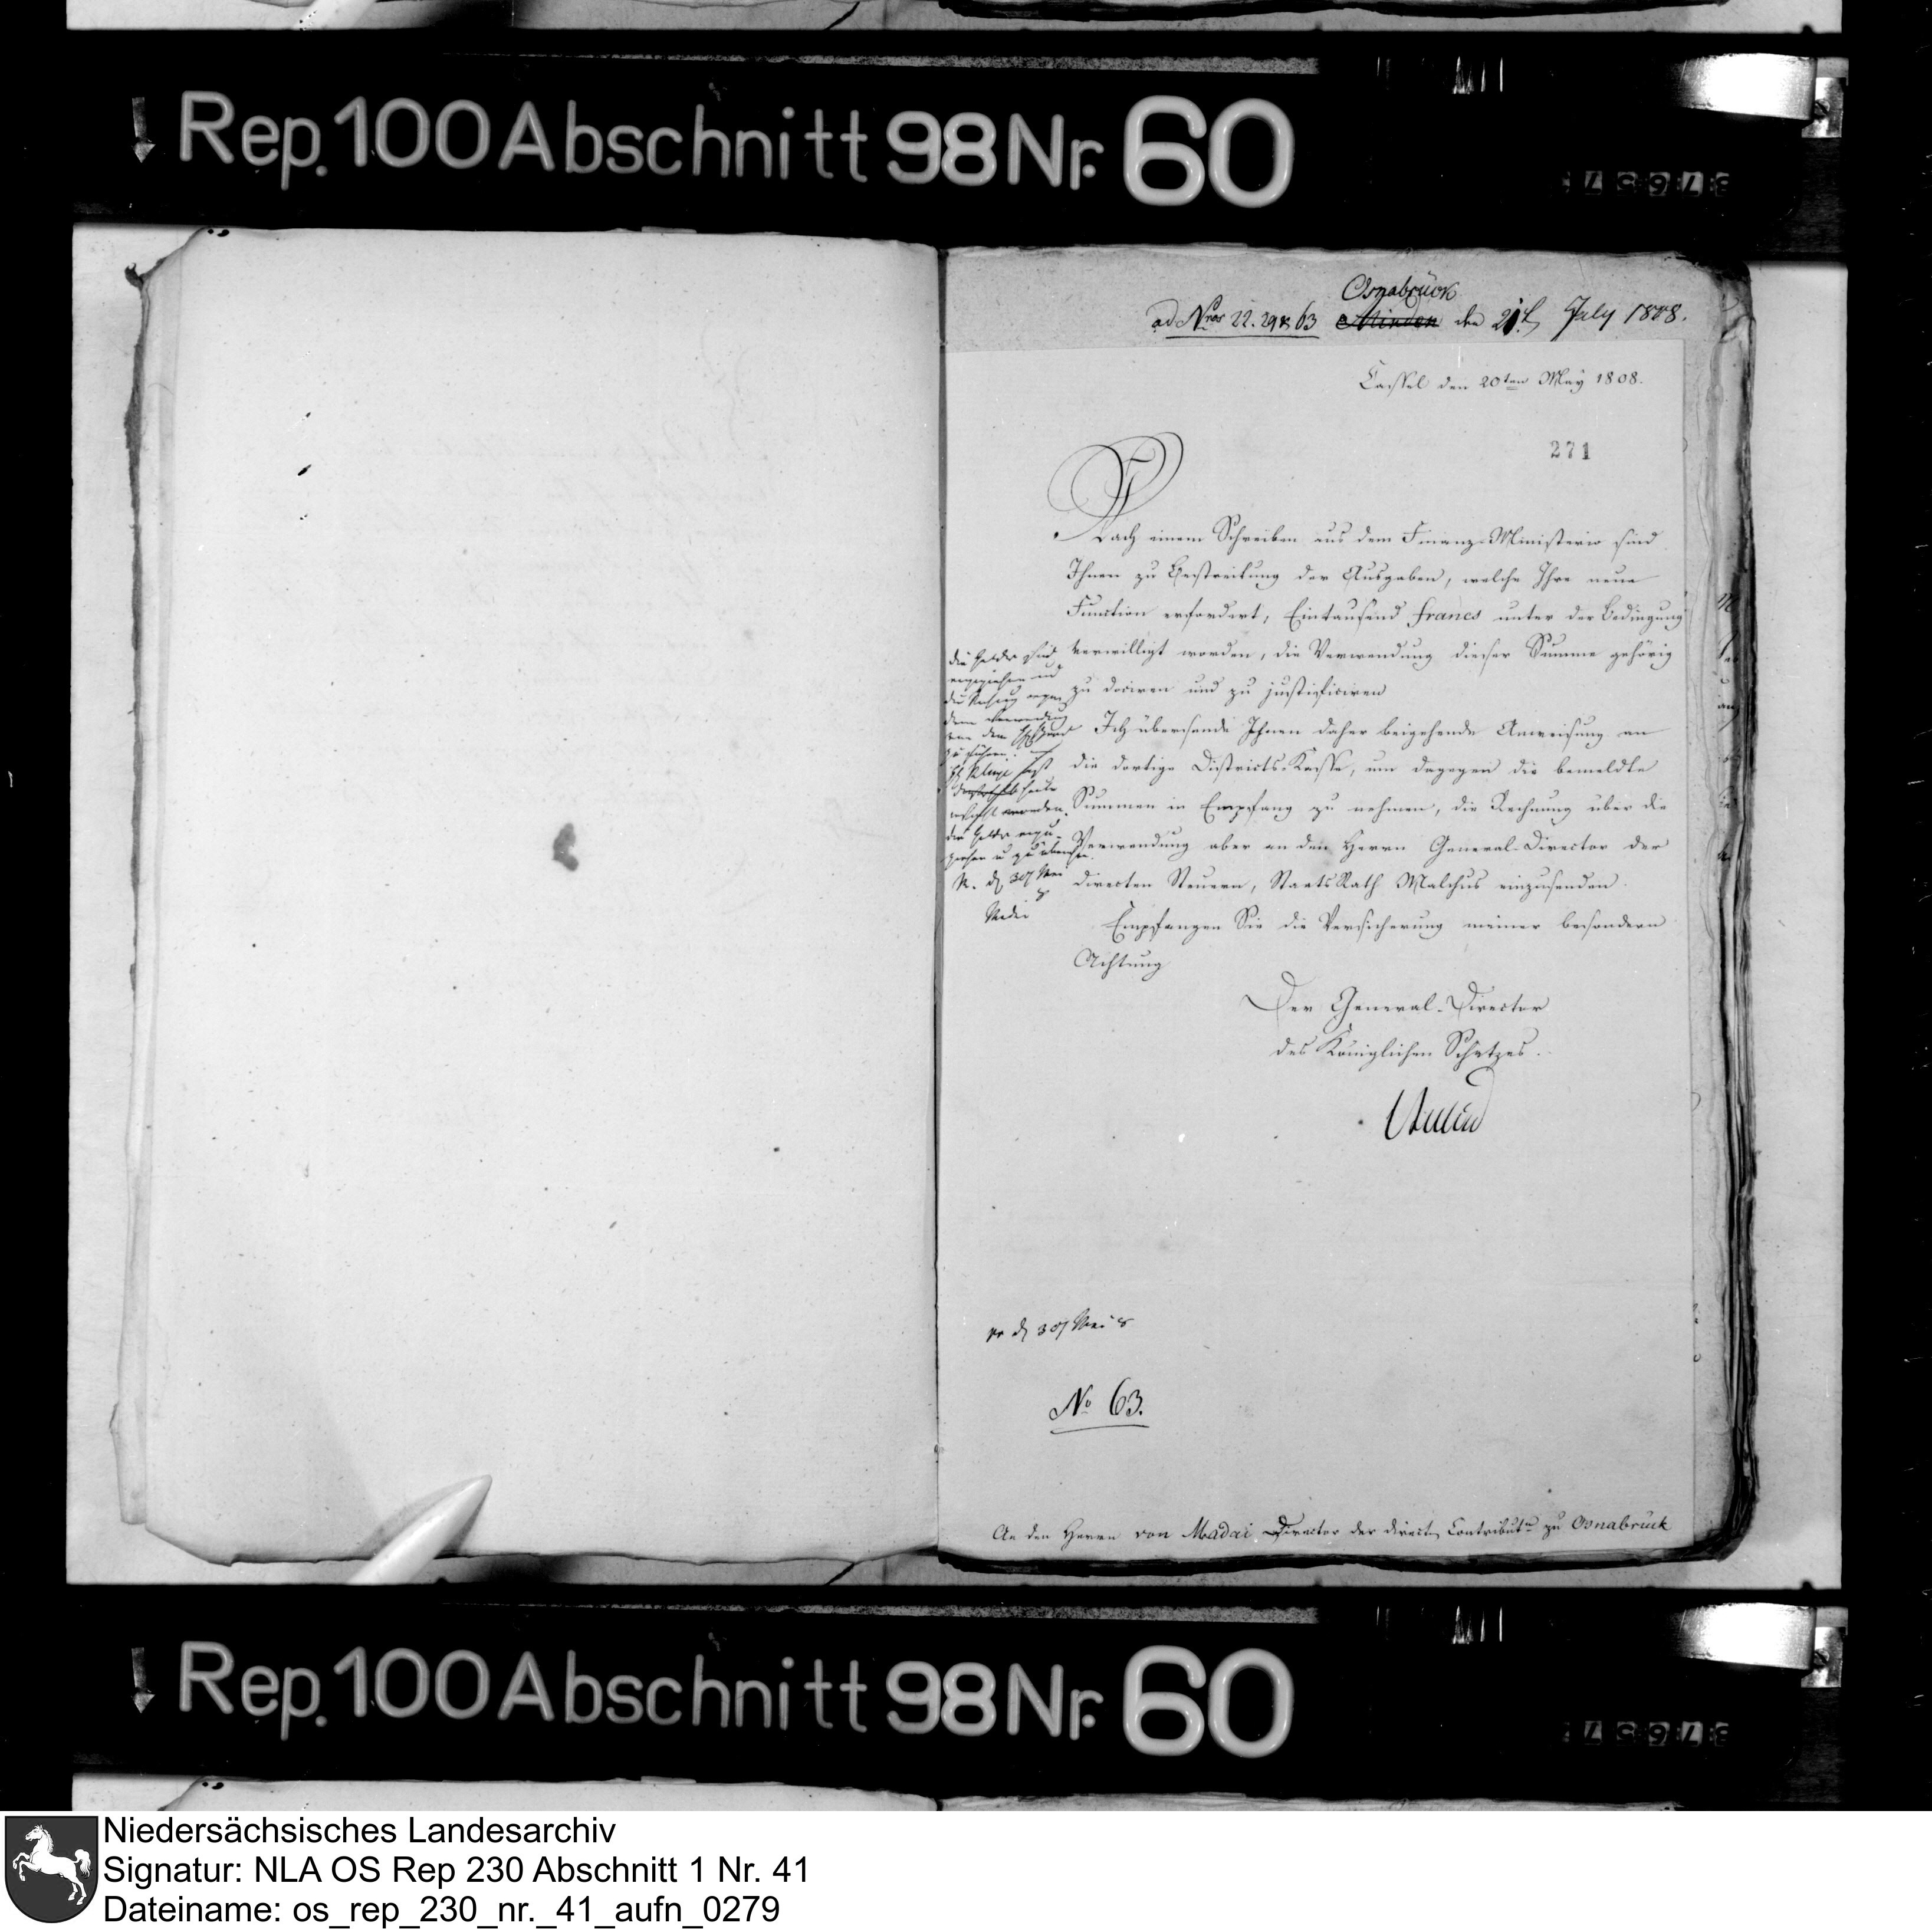 Rep. 100 Abschnitt 98 Nr. 60
Osnabrück
ad Nros 22. 29 & 63 Minden den 21t July 1808.
Cassel den 20ten May 1808.
271
Nach einem Schreiben aus dem Finanz-Ministerio sind
Ihnen zu Bestreitung der Ausgaben, welche Ihre neue
Function erfordert, Eintausend francs unter der Bedingung
verwilligt worden, die Verwendung dieser Summe gehörig
zu dociren und zu justificiren
Ich übersende Ihnen daher beigehende Anweisung an
die dortige Districts-Kasse, um dagegen die bemeldte
Summen in Empfang zu nehmen, die Rechnung über die
Verwendung aber an den Herrn General-Director der
directen Steuern, StaatsRath Malchus einzusenden.
Empfangen Sie die Versicherung meiner besondern
Achtung
Der General-Director
des Königlichen Schatzes.
die Gelder sind
zu führen.
heute
worden.
die Gelder
30 Mai
30 Mai 8
No 63.
An den Herrn von Madai Director der direct. Contribut. zu Osnabrück
Rep. 100 Abschnitt 98 Nr. 60
Niedersächsisches Landesarchiv
Signatur: NLA OS Rep 230 Abschnitt 1 Nr. 41
Dateiname: os_rep_230_nr._41_aufn_0279